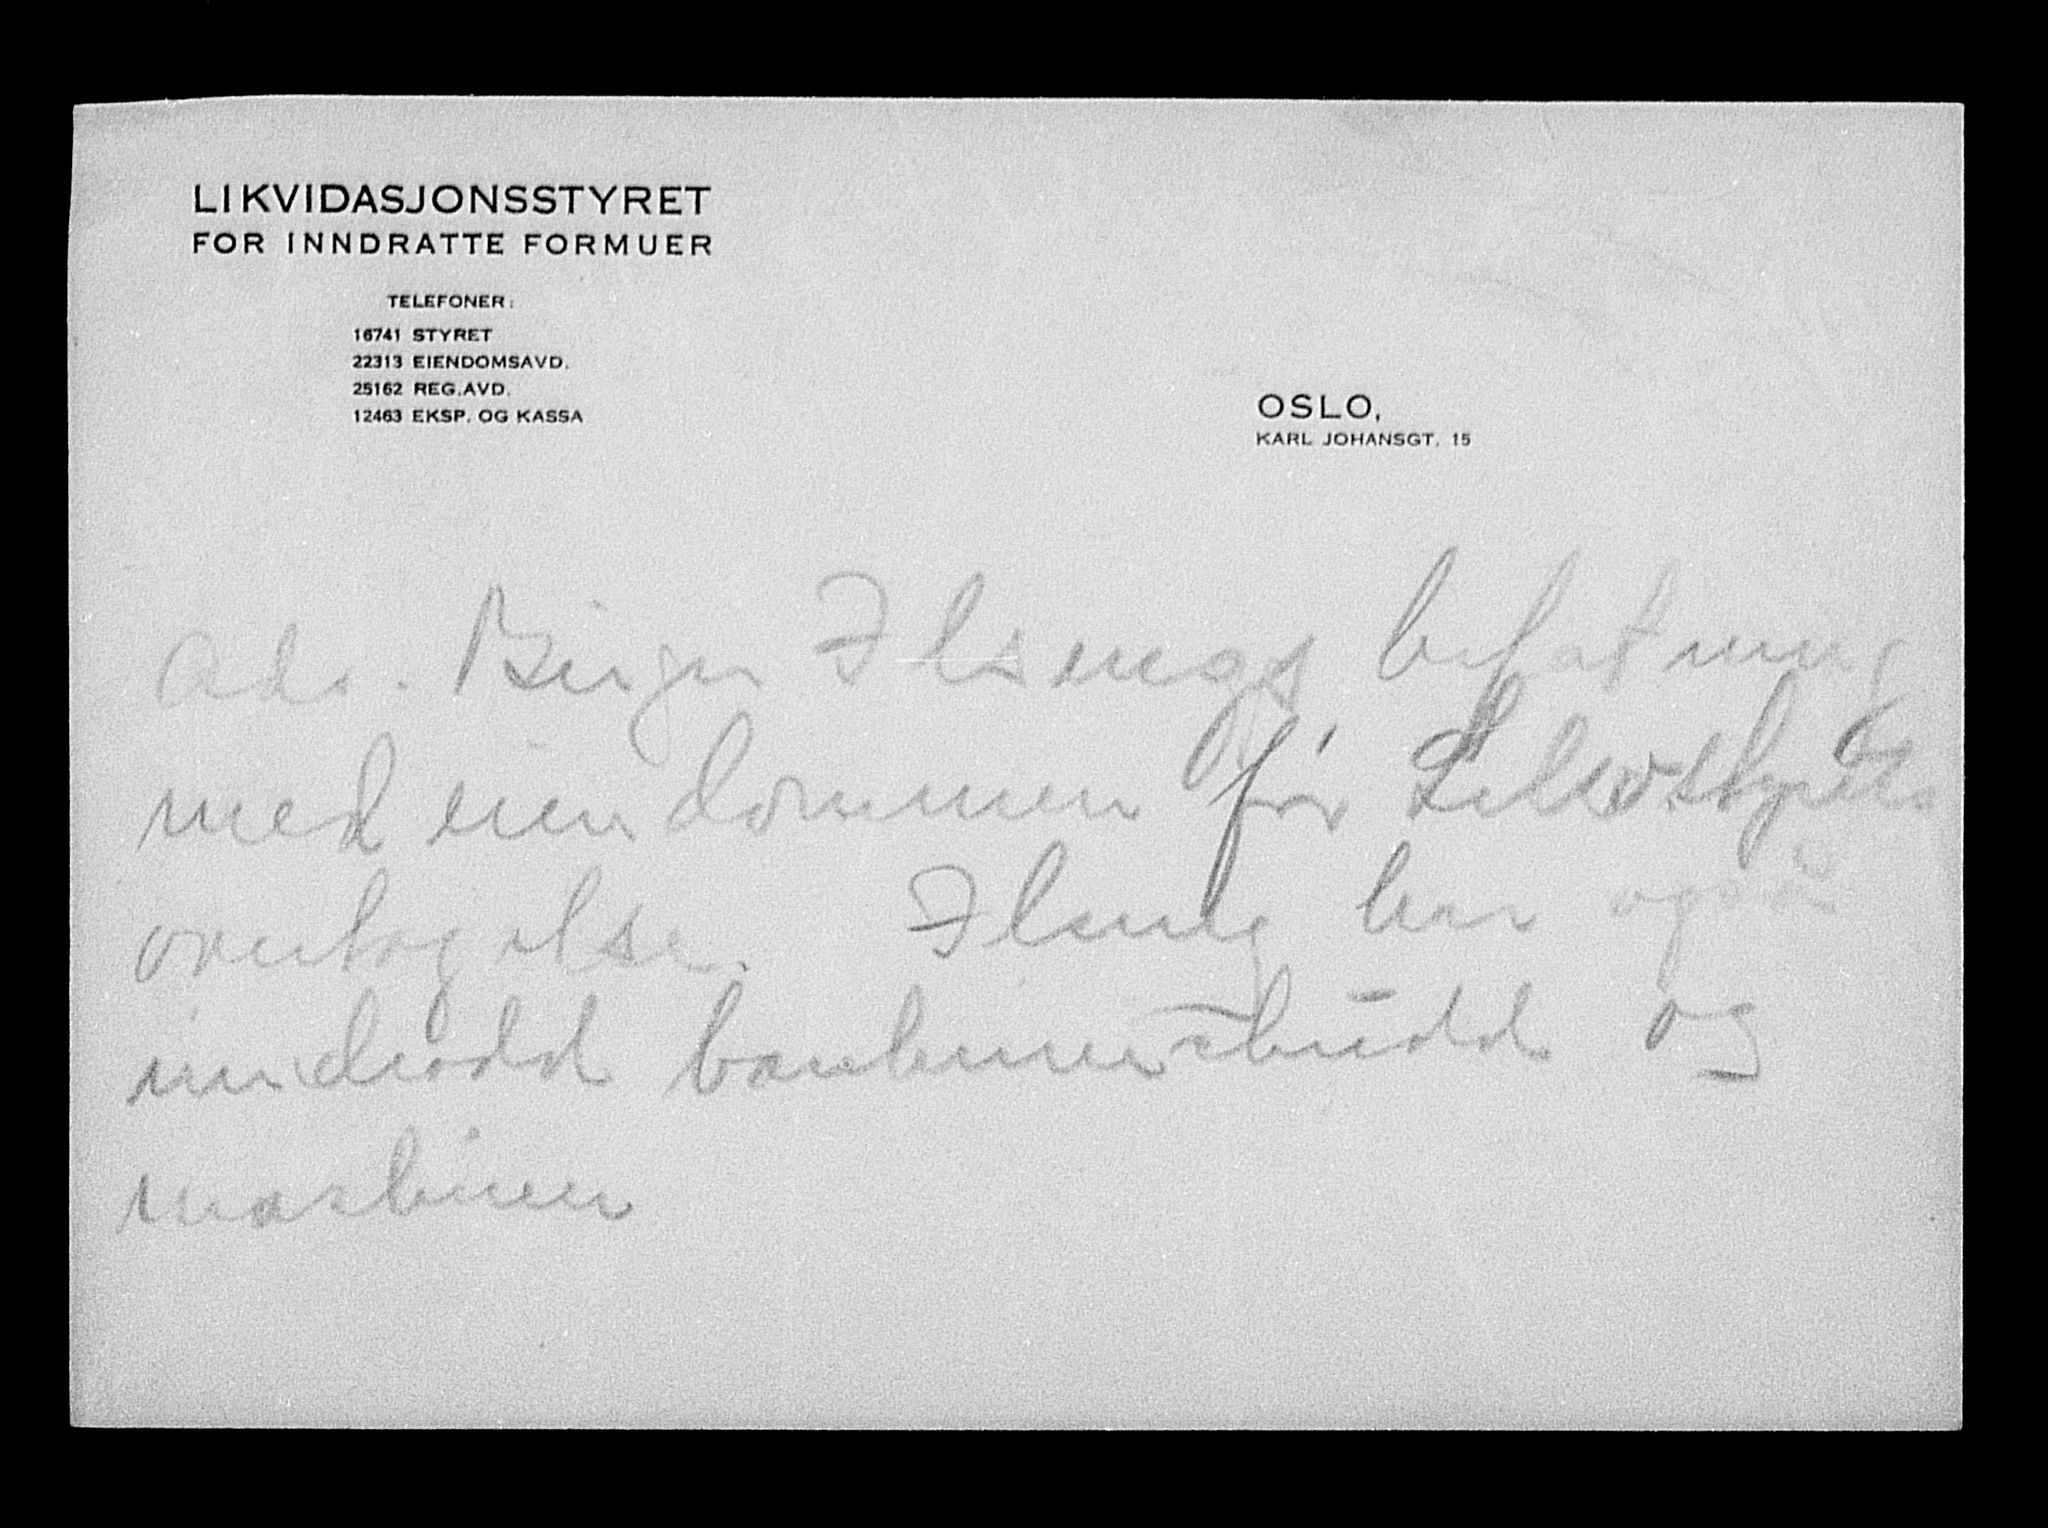 LIKVIDASJONSSTYRET
FOR INNDRATTE FORMUER
TELEFONER:
16741 STYRET
22313 EIENDOMSAVD.
25162 REG.AVD.
12463 EKSP. OG KASSA
OSLO,
KARL JOHANSGT. 15
Adv. Birger Ilsengs befatning
med eiendommen før Likv.styrets
overtagelse. Ilseng har også
inndradd bankinnskudd og
maskiner